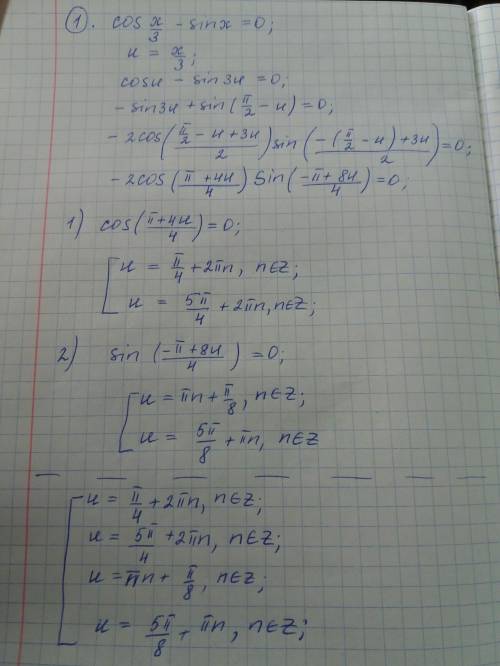 1. cos x/3 - sinx = 0;
u = x/3;
cosu - sin3u = 0;
- sin3u + sin(π/2 - u) = 0;
- 2cos((π/2 - u + 3u)/2) sin((-(π/2 - u) + 3u)/2) = 0;
- 2cos((π + 4u)/4) sin((-π + 8u)/4) = 0;
1) cos((π + 4u)/4) = 0;
[ u = π/4 + 2πn, n∈Z;
u = 5π/4 + 2πn, n∈Z;
2) sin((-π + 8u)/4) = 0;
[ u = πn + π/8, n∈Z;
u = 5π/8 + πn, n∈Z
[ u = π/4 + 2πn, n∈Z;
u = 5π/4 + 2πn, n∈Z;
u = πn + π/8, n∈Z;
u = 5π/8 + πn, n∈Z;